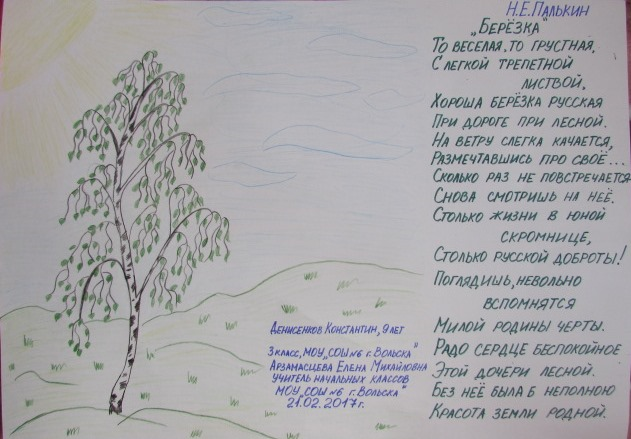 Н.Е.Палькин
„Берёзка"
То веселая, то грустная,
С легкой трепетной
листвой,
Хороша берёзка русская
При дороге при лесной.
На ветру слегка качается,
Размечтавшись про своё...
Сколько раз не повстречается
Снова смотришь на неё.
Столько жизни в юной
скромнице,
Столько русской доброты!
Поглядишь, невольно
вспомнятся
Милой родины черты.
Радо сердце беспокойное
Этой дочери лесной.
Без неё была б неполною
Красота земли родной.
Денисенков Константин, 9 лет
3 класс, МОУ„СОШ №6 г. Вольска"
Арзамасцева Елена Михайловна
учитель начальных классов
МОУ„СОШ №6 г. Вольска"
21.02.2017г.